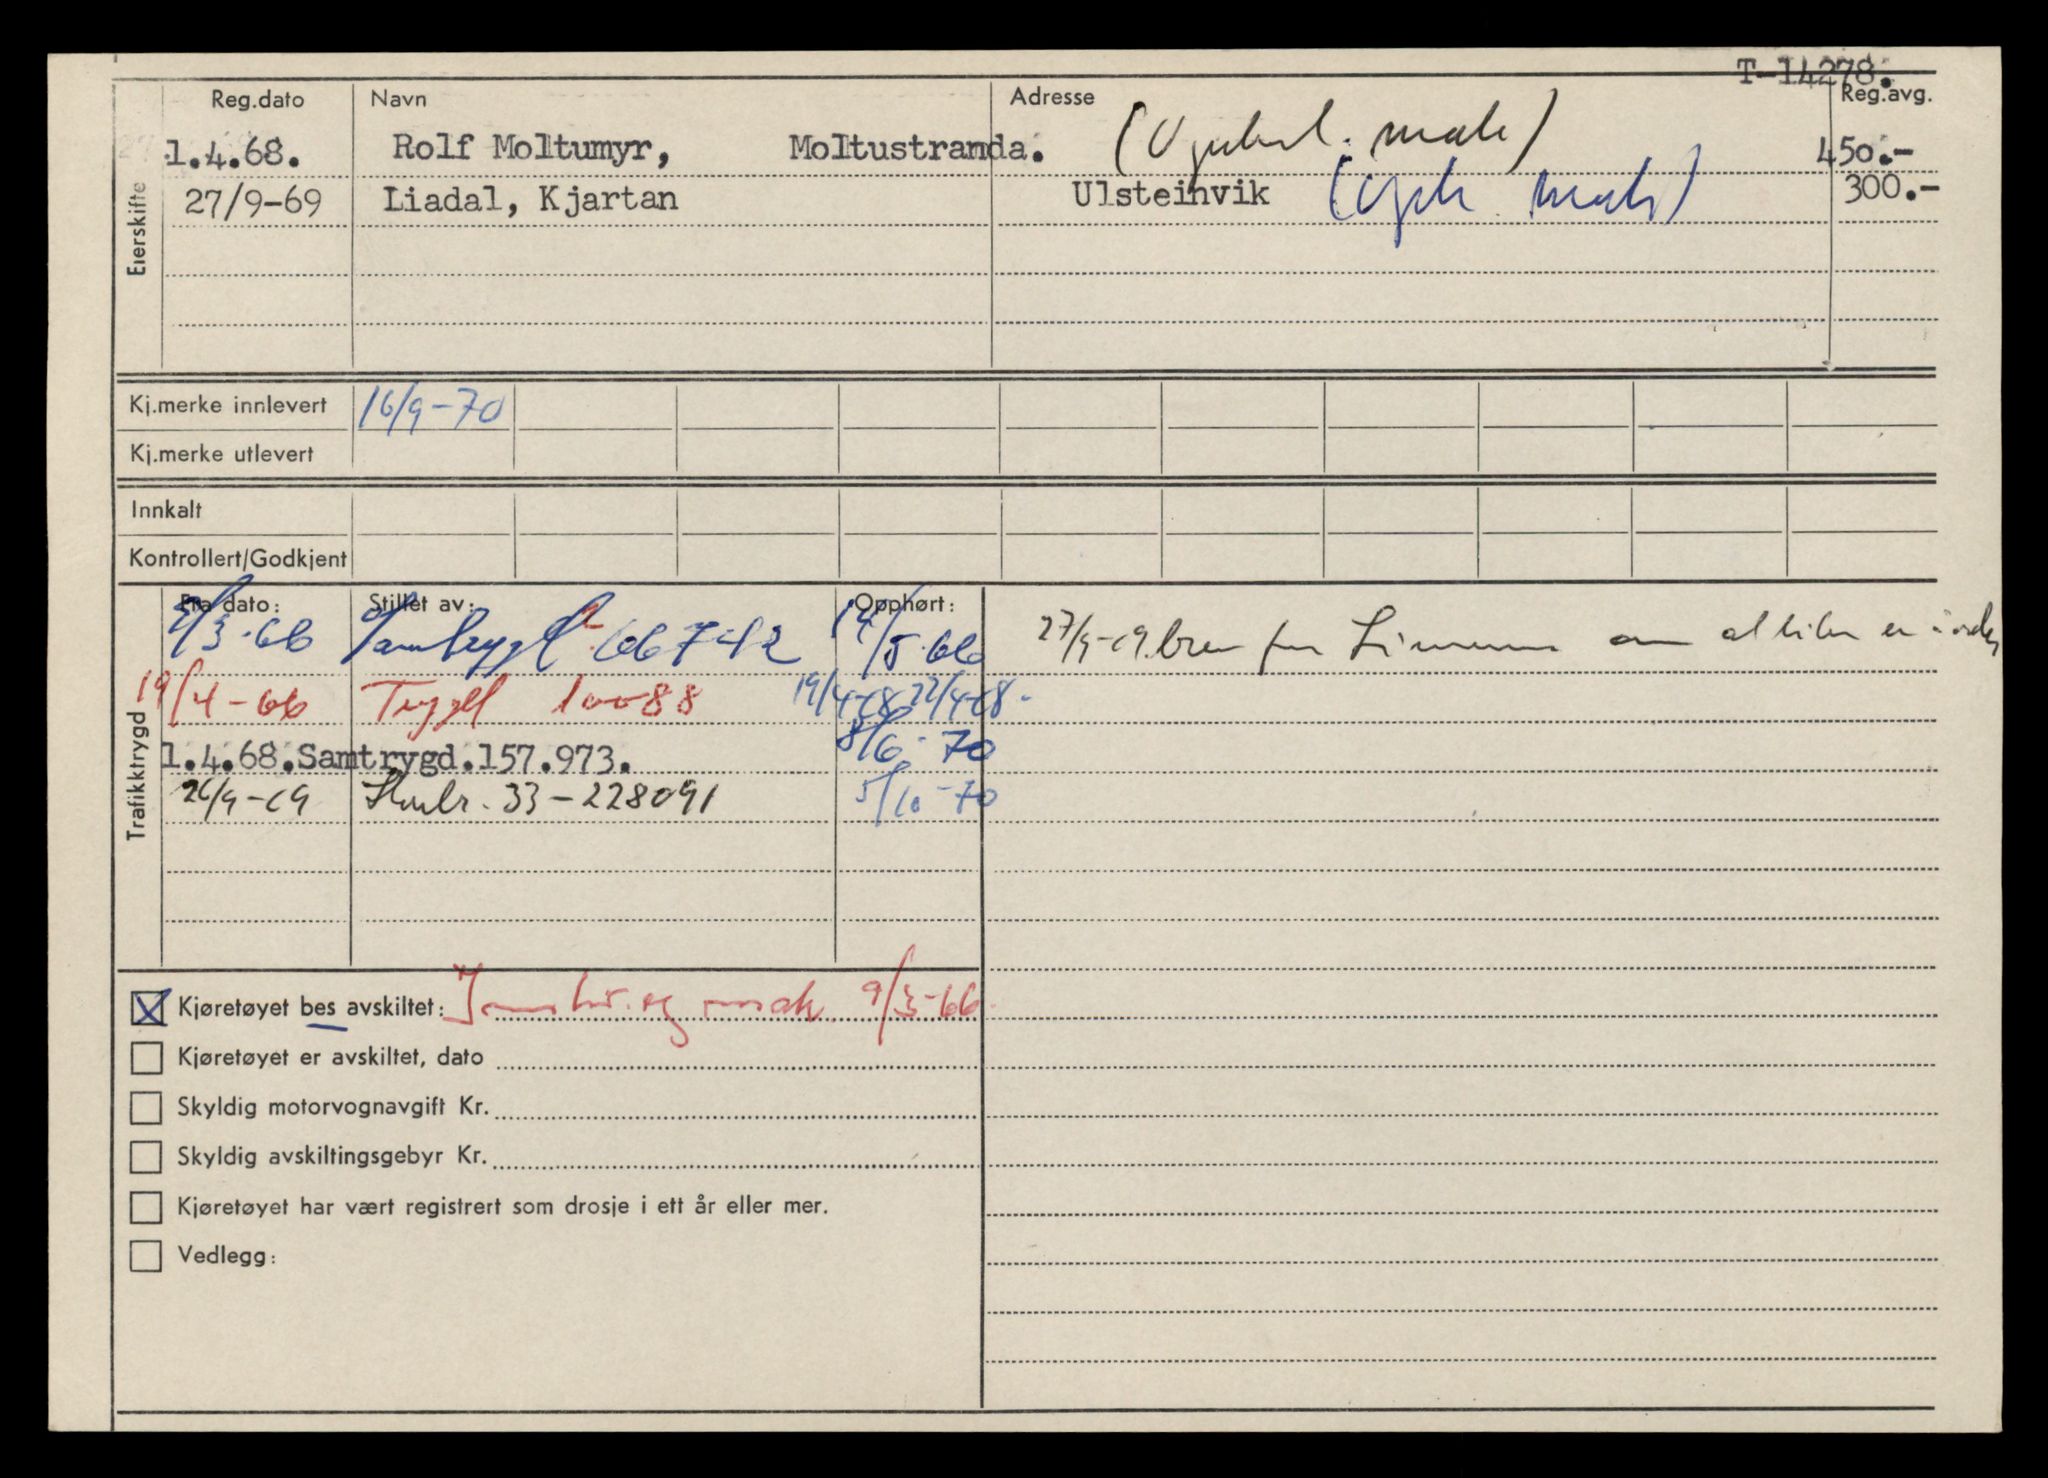 T-14278.
Reg.dato Navn Adresse Reg.avg.
1.4.68. Rolf Moltumyr, Moltustranda. 450.-
27/9-69 Liadal, Kjartan Ulsteinvik 300.-
Eierskifte
Kj.merke innlevert 16/9-70
Kj.merke utlevert
Innkalt
Kontrollert/Godkjent
Fra dato: Stillet av: Opphørt:
/3-66 Samtrygd 66742 14/5-66
27/9-69 brev fra om at bilen er i orden
19/4-66 Trygd 10088 19/4-68 22/4-68.
8/6-70
1.4.68. Samtrygd.157.973.
26/9-69 Storbr. 33-228091 5/10-70
Trafikktrygd
Kjøretøyet bes avskiltet: og 9/3-66.
Kjøretøyet er avskiltet, dato
Skyldig motorvognavgift Kr.
Skyldig avskiltingsgebyr Kr.
Kjøretøyet har vært registrert som drosje i ett år eller mer.
Vedlegg: